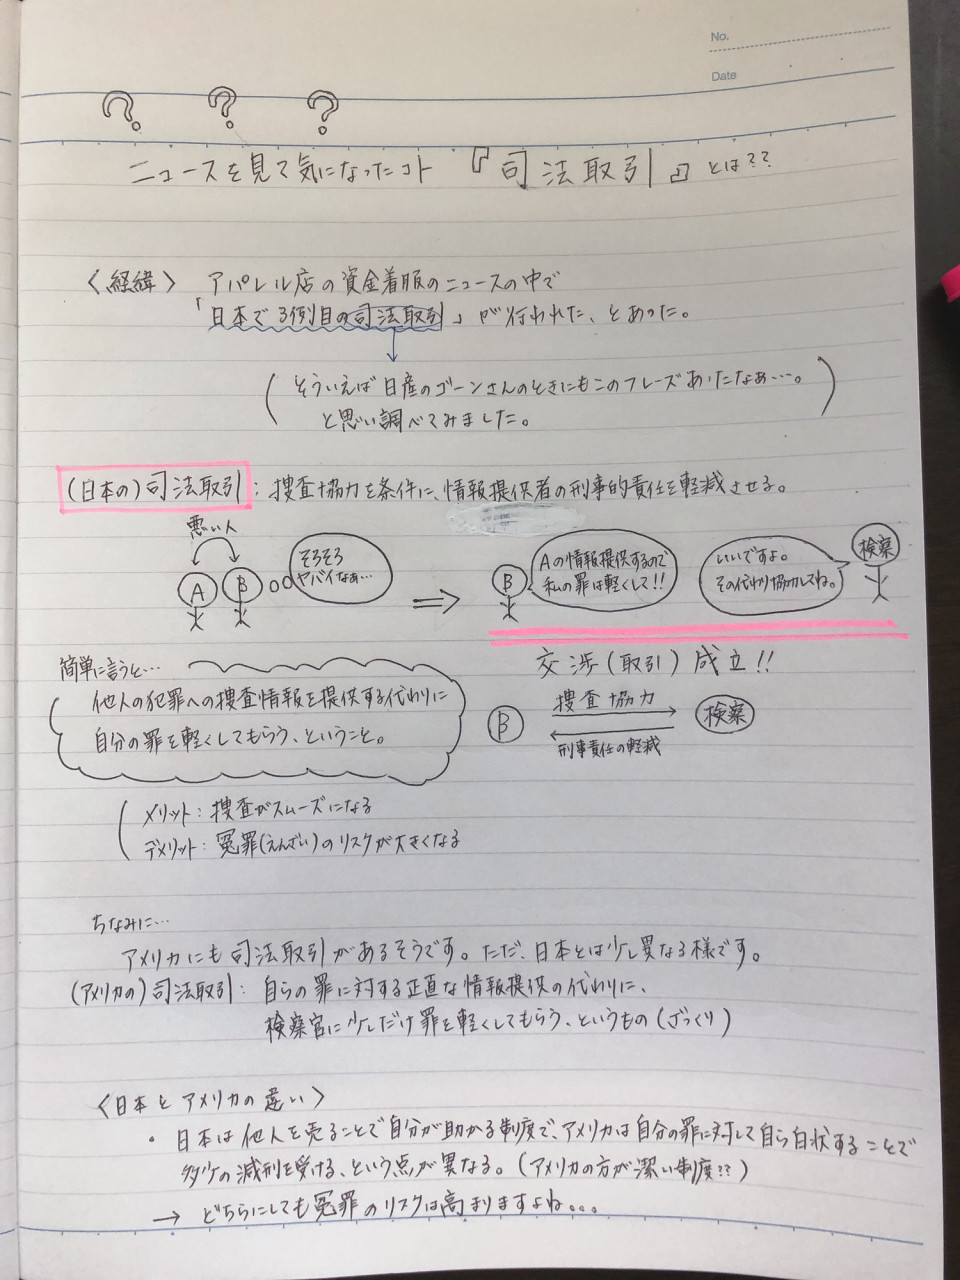 No.
Date
? ? ?
ニュースを見て気になったコト 『司法取引』とは??
〈経緯〉 アパレル店の資金着服のニュースの中で
「日本で3例目の司法取引」が行われた、とあった。
(そういえば日産のゴーンさんのときにもこのフレーズあったなぁ…。
と思い調べてみました。)
(日本の)司法取引:捜査協力を条件に、情報提供者の刑事的責任を軽減させる。
悪い人
A B
そろそろ
ヤバイなぁ…
⇒
B
Aの情報提供するので
私の罪は軽くして!!
いいですよ。
その代わり協力してね。
検察
交渉(取引)成立!!
簡単に言うと…
他人の犯罪への捜査情報を提供する代わりに
自分の罪を軽くしてもらう、ということ。
捜査協力
B 検察
刑事責任の軽減
メリット:捜査がスムーズになる
デメリット:冤罪(えんざい)のリスクが大きくなる
ちなみに…
アメリカにも司法取引があるそうです。ただ、日本とは少し異なる様です。
(アメリカの)司法取引:自らの罪に対する正直な情報提供の代わりに、
検察官に少しだけ罪を軽くしてもらう、というもの(ざっくり)
〈日本とアメリカの違い〉
・日本は他人を売ることで自分が助かる制度で、アメリカは自分の罪に対して自ら白状することで
多少の減刑を受ける、という点が異なる。(アメリカの方が潔い制度??)
→ どちらにしても冤罪のリスクは高まりますよね。。。